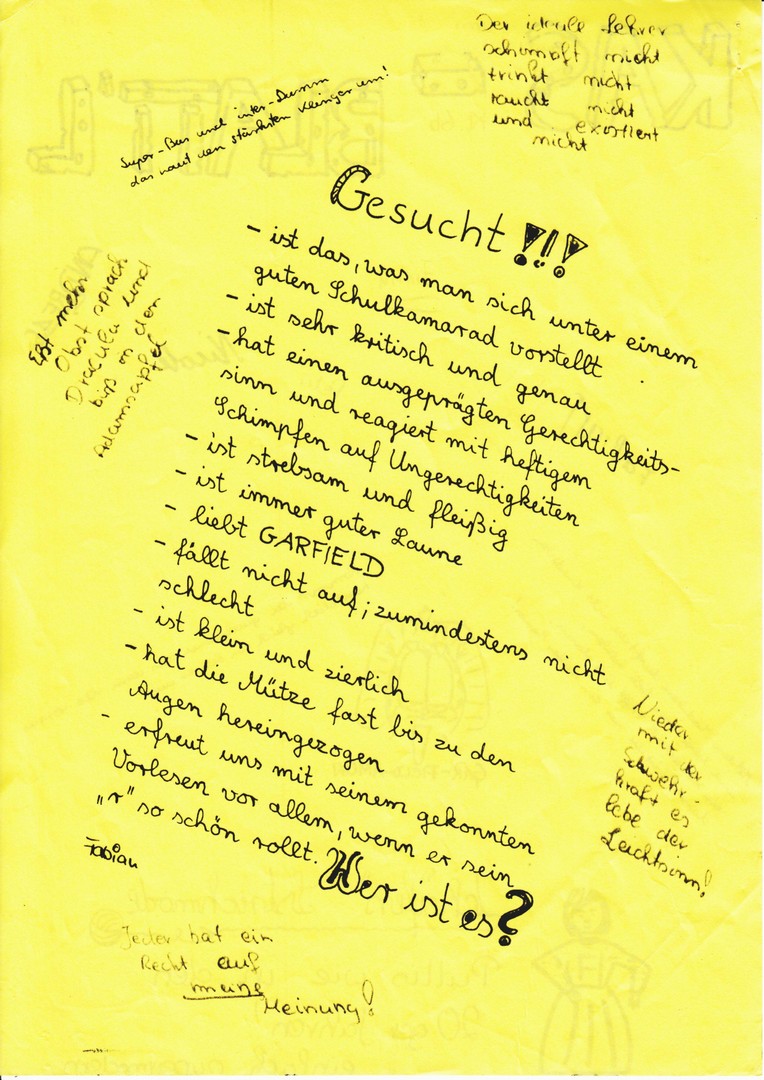 Der ideale Lehrer
schimpft nicht
trinkt nicht
raucht nicht
und exestiert
nicht
Super-Bus und inter-Dumm
das haut den stärksten Klinger um!
Gesucht !!!
- ist das, was man sich unter einem
guten Schulkamarad vorstellt
- ist sehr kritisch und genau
- hat einen ausgeprägten Gerechtigkeits-
sinn und reagiert mit heftigem
Schimpfen auf Ungerechtigkeiten
- ist strebsam und fleißig
- ist immer guter Laune
- liebt GARFIELD
- fällt nicht auf; zumindestens nicht
schlecht
- ist klein und zierlich
- hat die Mütze fast bis zu den
Augen hereingezogen
- erfreut uns mit seinem gekonnten
Vorlesen vor allem, wenn er sein
„r" so schön rollt.
Wer ist es?
Eßt mehr
Obst sprach
Dracula und
biß in den
Adamsapfel
Nieder
mit der
Schwehr-
kraft es
lebe der
Leichtsinn!
Fabian
Jeder hat ein
Recht auf
meine
Meinung!